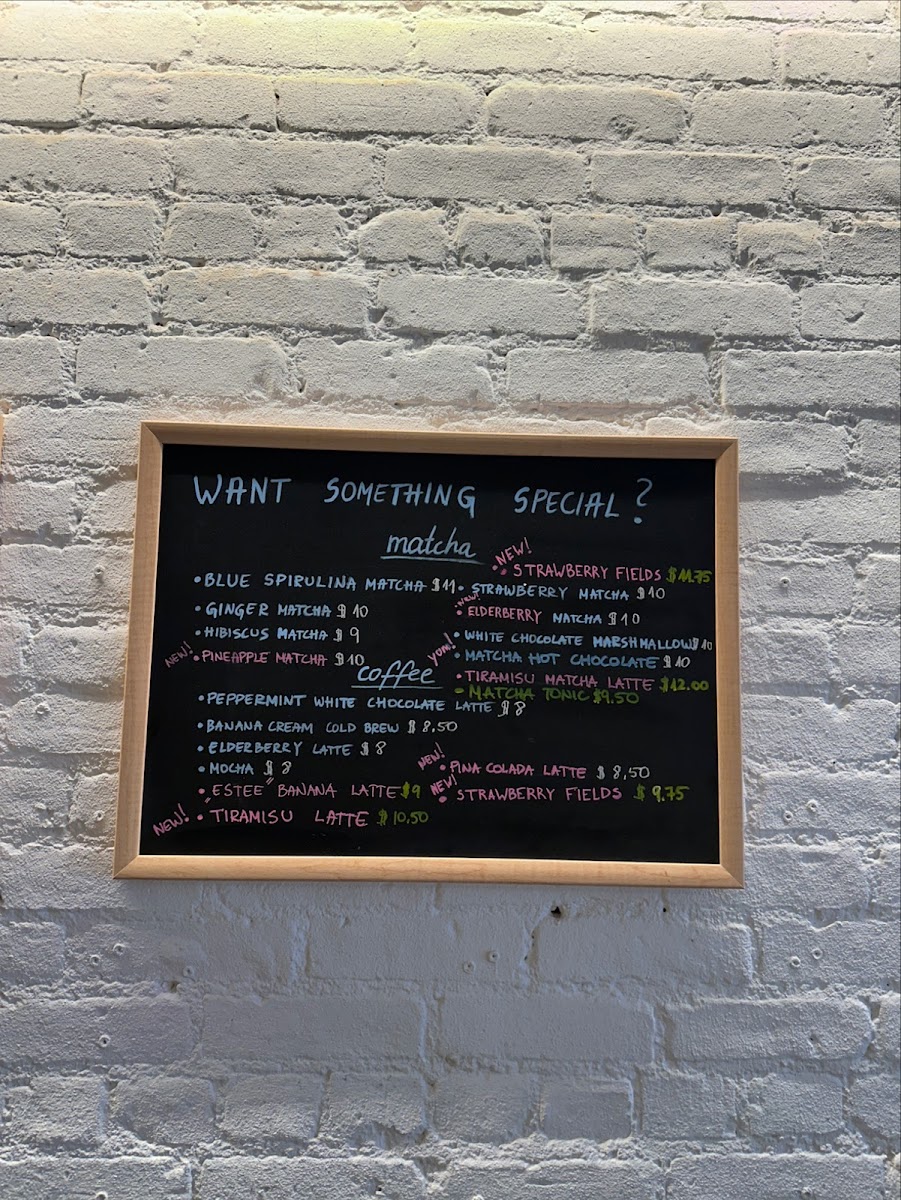 WANT SOMETHING SPECIAL?
matcha
• BLUE SPIRULINA MATCHA $11
• GINGER MATCHA $10
• HIBISCUS MATCHA $9
NEW! • PINEAPPLE MATCHA $10
NEW! • STRAWBERRY FIELDS $11.75
• STRAWBERRY MATCHA $10
new! • ELDERBERRY MATCHA $10
• WHITE CHOCOLATE MARSHMALLOW $10
yum! • MATCHA HOT CHOCOLATE $10
• TIRAMISU MATCHA LATTE $12.00
• MATCHA TONIC $9.50
coffee
• PEPPERMINT WHITE CHOCOLATE LATTE $8
• BANANA CREAM COLD BREW $8,50
• ELDERBERRY LATTE $8
• MOCHA $8
• "ESTEE" BANANA LATTE $9
NEW! • TIRAMISU LATTE $10,50
NEW! • PINA COLADA LATTE $8,50
NEW! • STRAWBERRY FIELDS $9.75